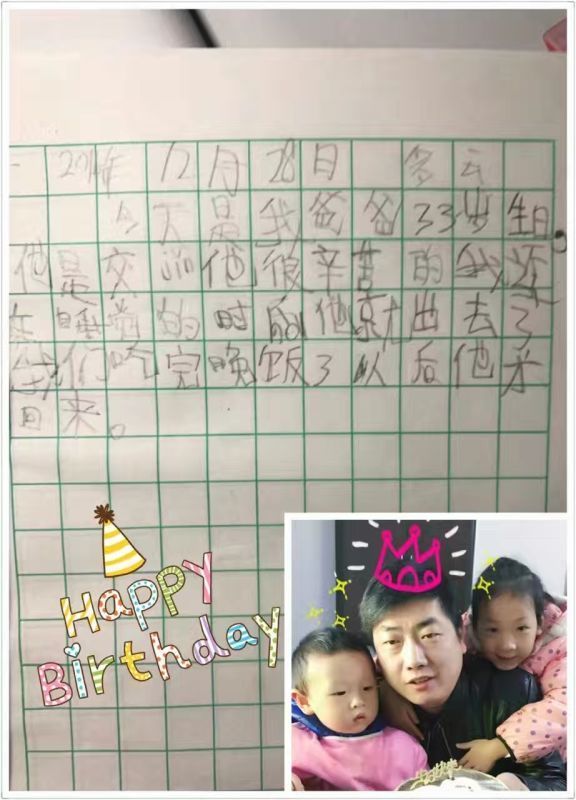 年 12月28日 多云
今天是我爸爸33岁生日。
他是交jin他很辛苦的我还
在睡觉的时后他就出去了
我们吃完晚饭了以后他才
回来。
Happy
Birthday
生日快乐